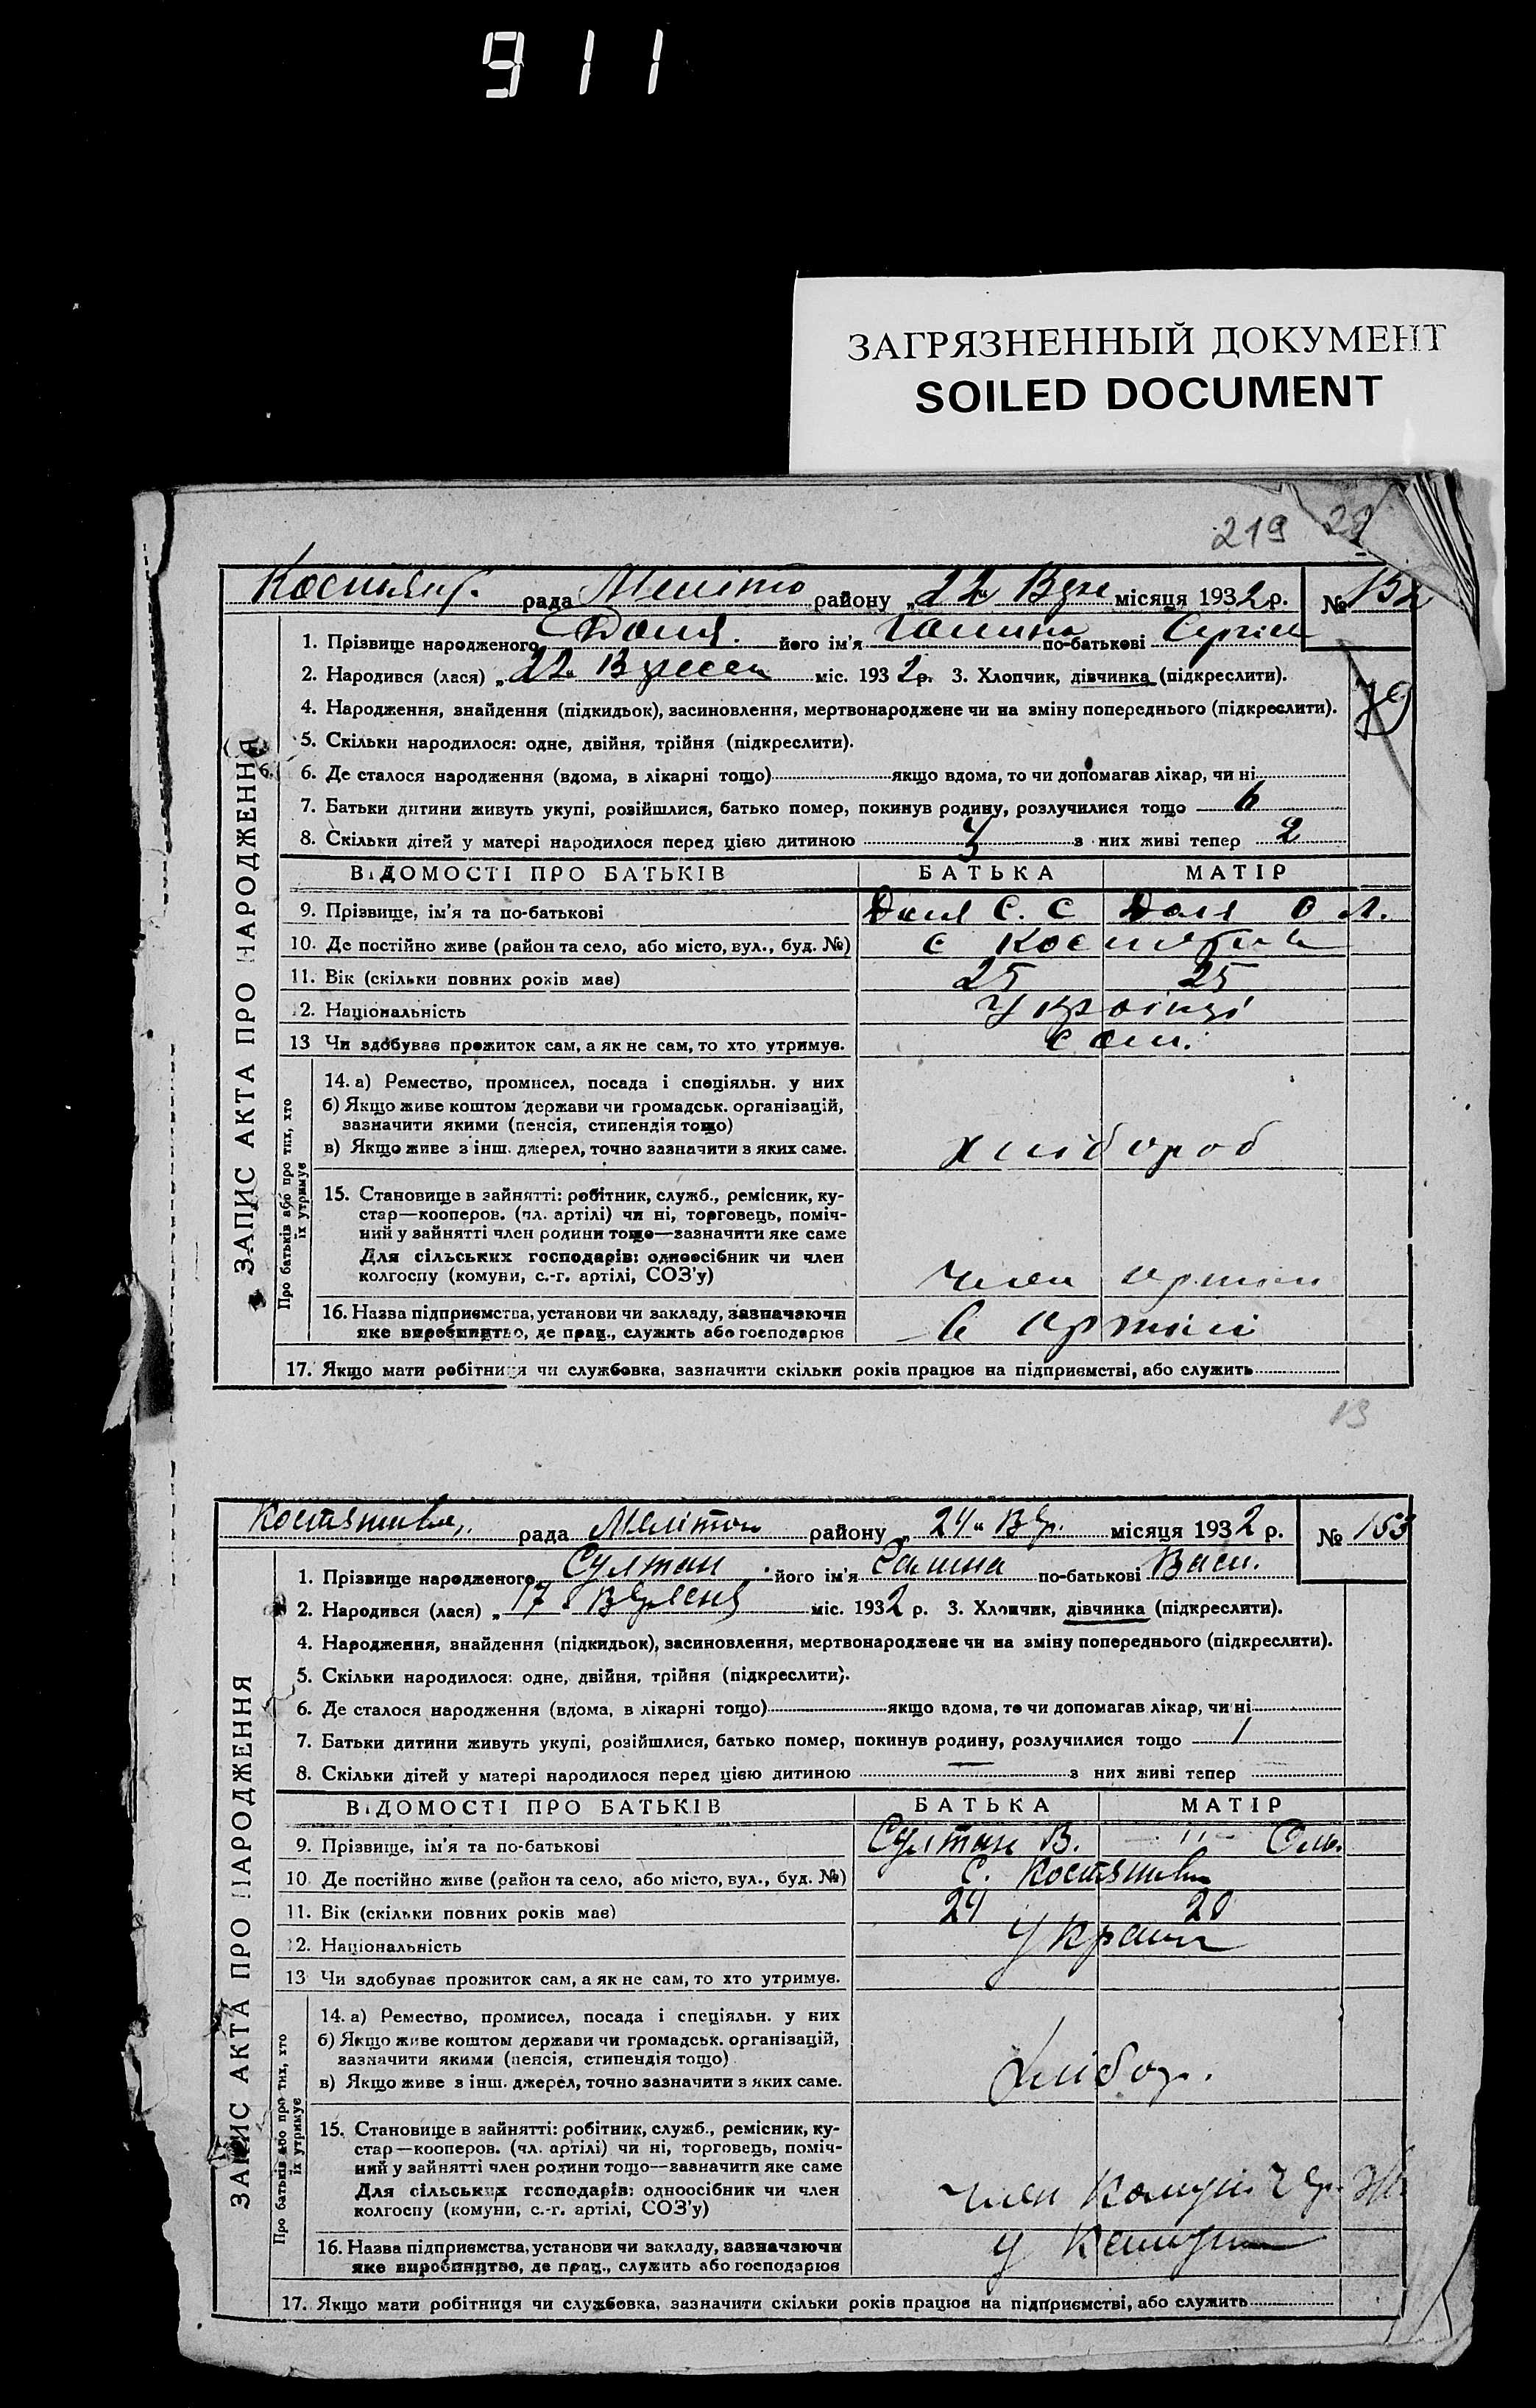 911
ЗАГРЯЗНЕННЫЙ ДОКУМЕНТ
SOILED DOCUMENT
219
рада Меліто району „22" Вере місяця 1932 р. № 152
1. Прізвище народженого Доля. його ім'я Галина по-батькові Сергіїв
2. Народився (лася) „22" Вересен міс. 1932 р. 3. Хлопчик, дівчинка (підкреслити).
79
4. Народження, знайдення (підкидьок), засиновлення, мертвонароджене чи на зміну попереднього (підкреслити).
5. Скільки народилося: одне, двійня, трійня (підкреслити).
6. Де сталося народження (вдома, в лікарні тощо) якщо вдома, то чи допомагав лікар, чи ні
7. Батьки дитини живуть укупі, розійшлися, батько помер, покинув родину, розлучилися тощо
8. Скільки дітей у матері народилося перед цією дитиною 3 з них живі тепер 2
ЗАПИС АКТА ПРО НАРОДЖЕННЯ
ВІДОМОСТІ ПРО БАТЬКІВ БАТЬКА МАТІР
9. Прізвище, ім'я та по-батькові Доля С. С Доля О Л.
10. Де постійно живе (район та село, або місто, вул., буд. №) с
11. Вік (скільки повних років має) 25 25
12. Національність Українці
13 Чи здобуває прожиток сам, а як не сам, то хто утримує. сам.
Про батьків або про тих, хто їх утримує
14. а) Ремество, промисел, посада і спеціяльн. у них
б) Якщо живе коштом держави чи громадськ. організацій,
зазначити якими (пенсія, стипендія тощо)
в) Якщо живе з інш. джерел, точно зазначити з яких саме. хлібороб
15. Становище в зайнятті: робітник, служб., ремісник, ку-
стар—кооперов. (чл. артілі) чи ні, торговець, поміч-
ний у зайнятті член родини тощо—зазначити яке саме
Для сільських господарів: одноосібник чи член
колгоспу (комуни, с.-г. артілі, СОЗ'у) член артілі
16. Назва підприємства, установи чи закладу, зазначаючи
яке виробництво, де прац., служить або господарює в артілі
17. Якщо мати робітниця чи службовка, зазначити скільки років працює на підприємстві, або служить
13
рада Мелітоп району „24" Вер. місяця 1932 р. № 153
1. Прізвище народженого Султан його ім'я Галина по-батькові Васи.
2. Народився (лася) „17" Вересня міс. 1932 р. 3. Хлопчик, дівчинка (підкреслити).
4. Народження, знайдення (підкидьок), засиновлення, мертвонароджене чи на зміну попереднього (підкреслити).
5. Скільки народилося: одне, двійня, трійня (підкреслити).
6. Де сталося народження (вдома, в лікарні тощо) якщо вдома, то чи допомагав лікар, чи ні
7. Батьки дитини живуть укупі, розійшлися, батько помер, покинув родину, розлучилися тощо 1
8. Скільки дітей у матері народилося перед цією дитиною — з них живі тепер
ЗАПИС АКТА ПРО НАРОДЖЕННЯ
ВІДОМОСТІ ПРО БАТЬКІВ БАТЬКА МАТІР
9. Прізвище, ім'я та по-батькові Султан В. — " —
10. Де постійно живе (район та село, або місто, вул., буд. №) с.
11. Вік (скільки повних років має) 24 20
12. Національність
13 Чи здобуває прожиток сам, а як не сам, то хто утримує.
Про батьків або про тих, хто їх утримує
14. а) Ремество, промисел, посада і спеціяльн. у них
б) Якщо живе коштом держави чи громадськ. організацій,
зазначити якими (пенсія, стипендія тощо)
в) Якщо живе з інш. джерел, точно зазначити з яких саме. хлібор.
15. Становище в зайнятті: робітник, служб., ремісник, ку-
стар—кооперов. (чл. артілі) чи ні, торговець, поміч-
ний у зайнятті член родини тощо—зазначити яке саме
Для сільських господарів: одноосібник чи член
колгоспу (комуни, с.-г. артілі, СОЗ'у) член
16. Назва підприємства, установи чи закладу, зазначаючи
яке виробництво, де прац., служить або господарює у
17. Якщо мати робітниця чи службовка, зазначити скільки років працює на підприємстві, або служить